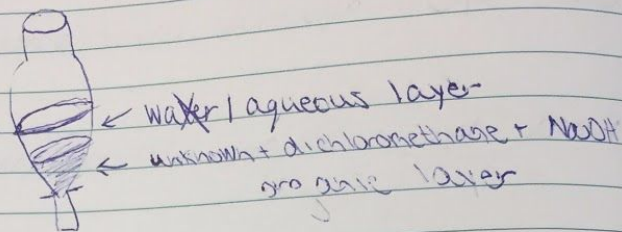 water / aqueous layer
unknown + dichloromethane + NaOH
organic layer